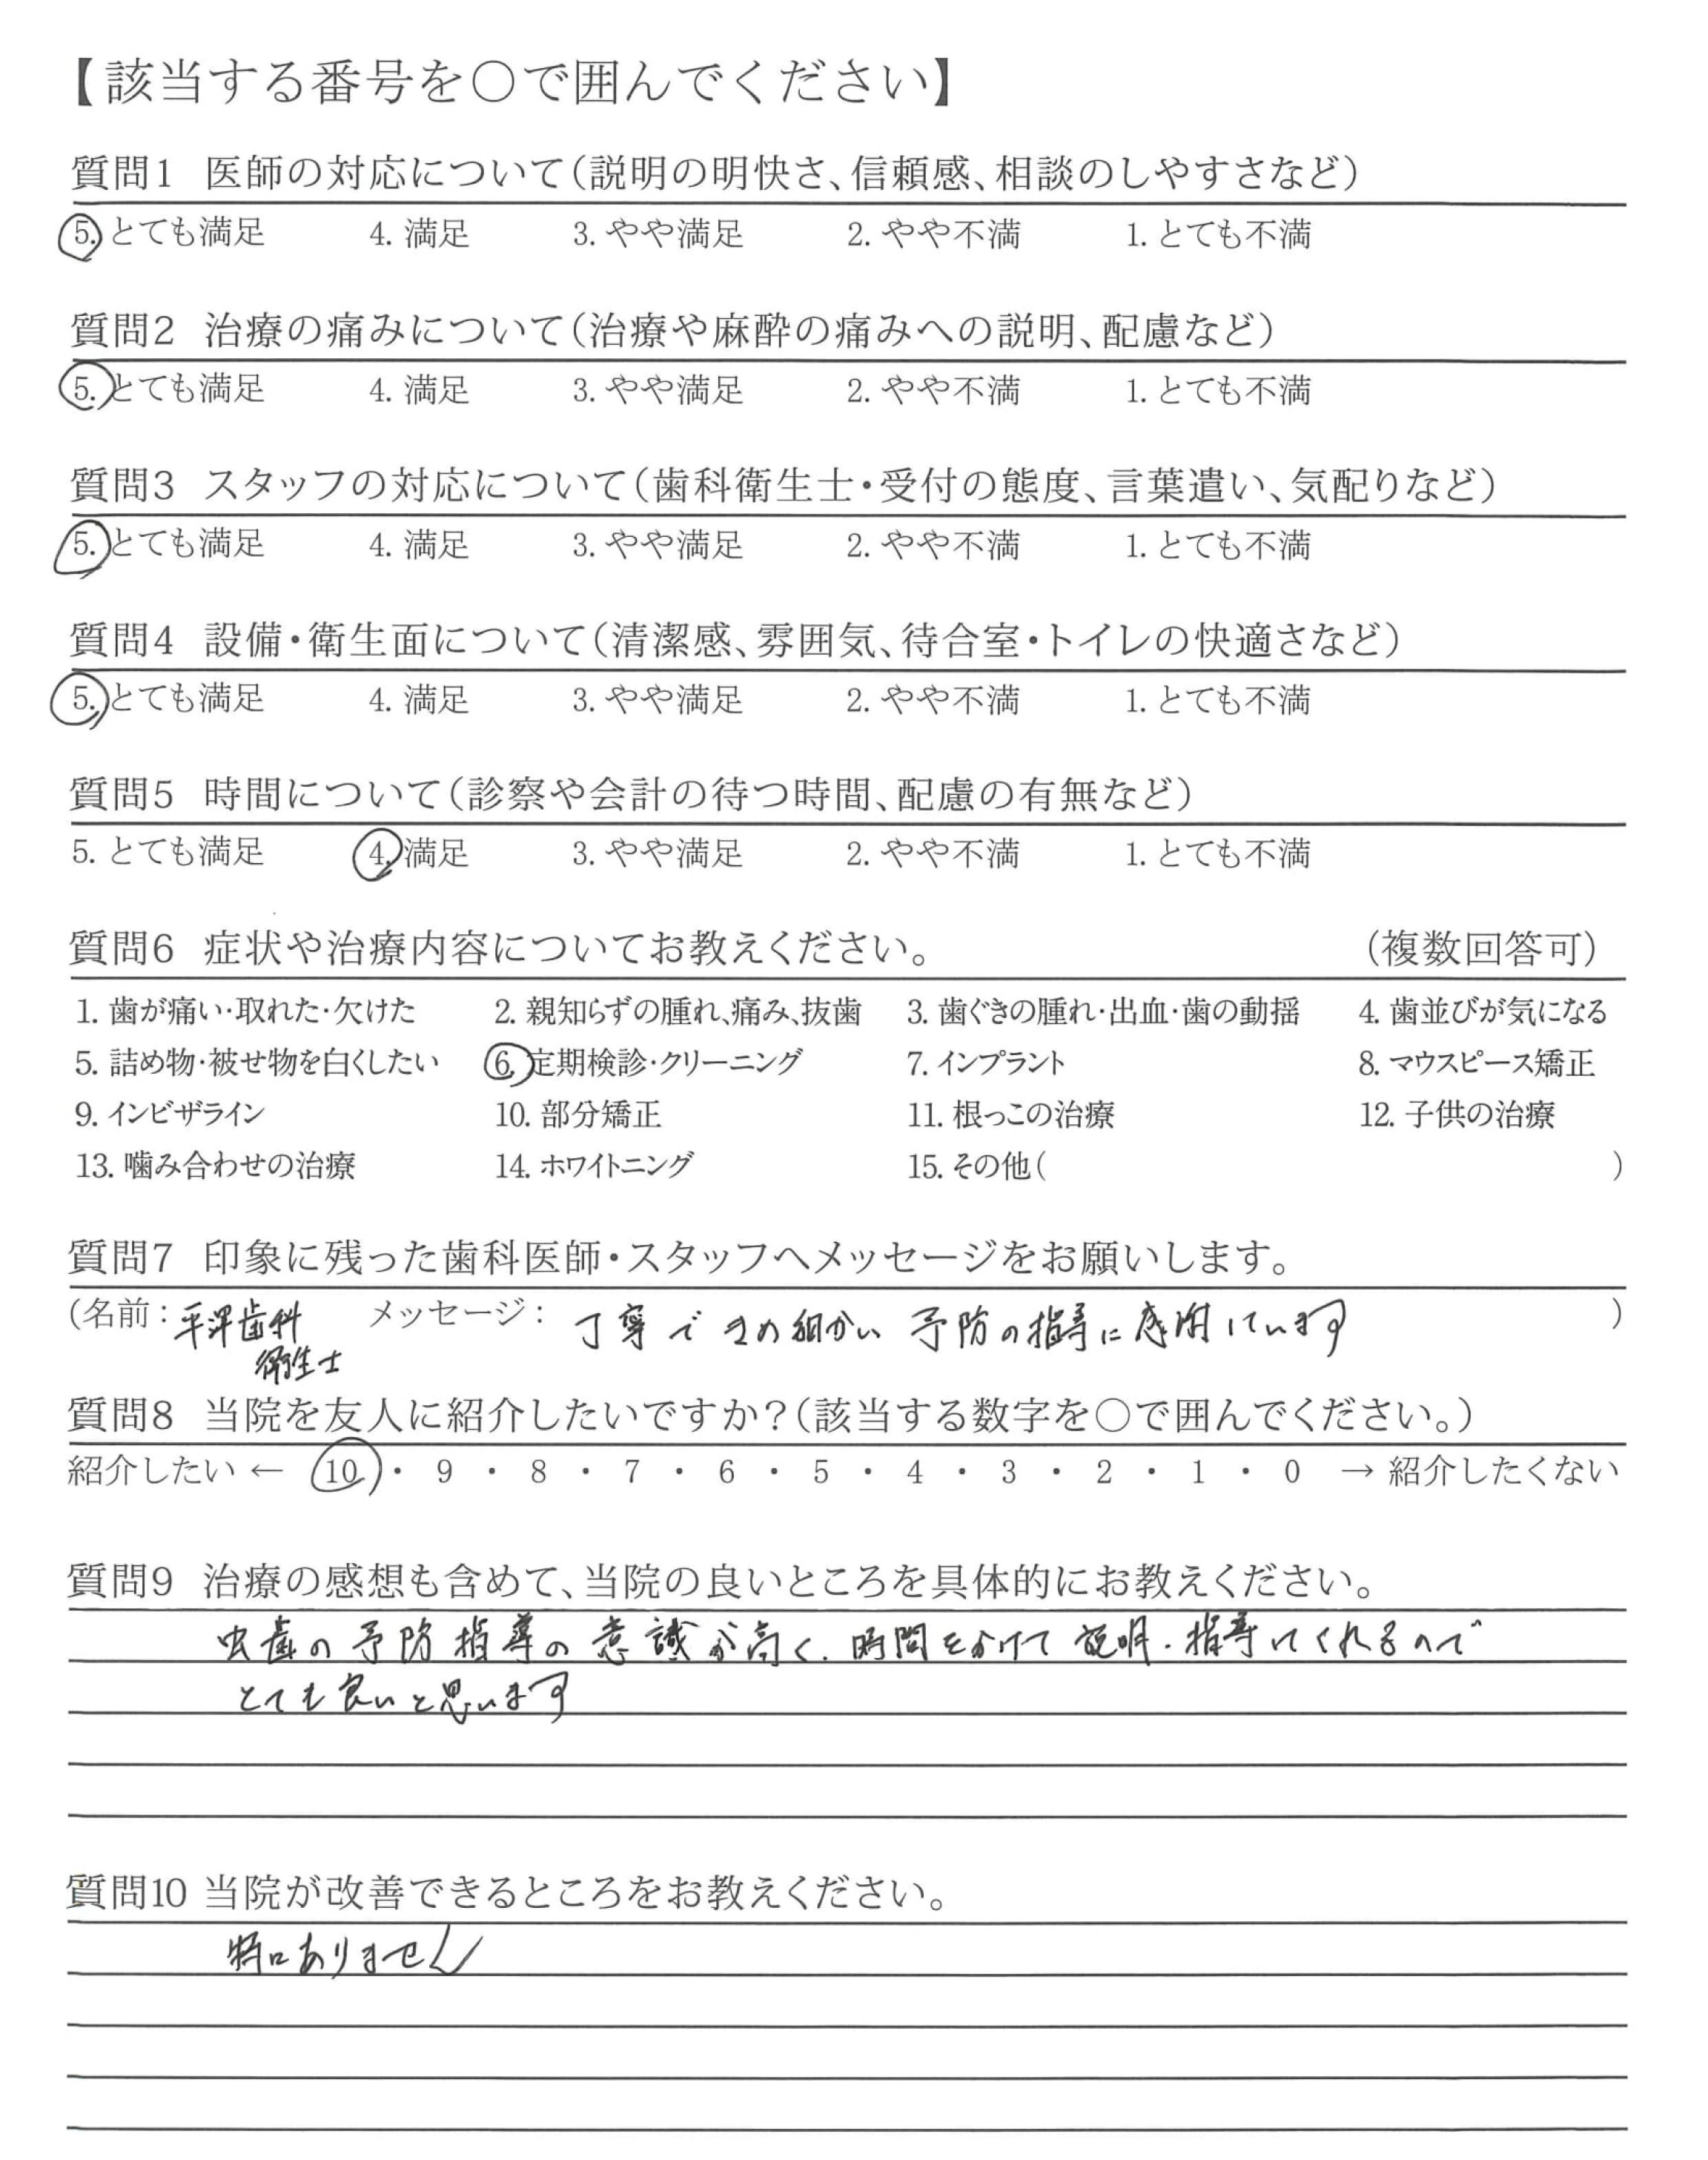 【該当する番号を○で囲んでください】
質問1 医師の対応について(説明の明快さ、信頼感、相談のしやすさなど)
5. とても満足 4. 満足 3. やや満足 2. やや不満 1. とても不満
質問2 治療の痛みについて(治療や麻酔の痛みへの説明、配慮など)
5. とても満足 4. 満足 3. やや満足 2. やや不満 1. とても不満
質問3 スタッフの対応について(歯科衛生士・受付の態度、言葉遣い、気配りなど)
5. とても満足 4. 満足 3. やや満足 2. やや不満 1. とても不満
質問4 設備・衛生面について(清潔感、雰囲気、待合室・トイレの快適さなど)
5. とても満足 4. 満足 3. やや満足 2. やや不満 1. とても不満
質問5 時間について(診察や会計の待つ時間、配慮の有無など)
5. とても満足 4. 満足 3. やや満足 2. やや不満 1. とても不満
質問6 症状や治療内容についてお教えください。 (複数回答可)
1. 歯が痛い・取れた・欠けた 2. 親知らずの腫れ、痛み、抜歯 3. 歯ぐきの腫れ・出血・歯の動揺 4. 歯並びが気になる
5. 詰め物・被せ物を白くしたい 6. 定期検診・クリーニング 7. インプラント 8. マウスピース矯正
9. インビザライン 10. 部分矯正 11. 根っこの治療 12. 子供の治療
13. 噛み合わせの治療 14. ホワイトニング 15. その他( )
質問7 印象に残った歯科医師・スタッフへメッセージをお願いします。
(名前: 平澤歯科 メッセージ: 丁寧できめ細かい予防の指導に感謝しています )
衛生士
質問8 当院を友人に紹介したいですか?(該当する数字を○で囲んでください。)
紹介したい ← 10 ・ 9 ・ 8 ・ 7 ・ 6 ・ 5 ・ 4 ・ 3 ・ 2 ・ 1 ・ 0 → 紹介したくない
質問9 治療の感想も含めて、当院の良いところを具体的にお教えください。
虫歯の予防指導の意識が高く、時間をかけて説明・指導してくれるので
とても良いと思います
質問10 当院が改善できるところをお教えください。
特にありません